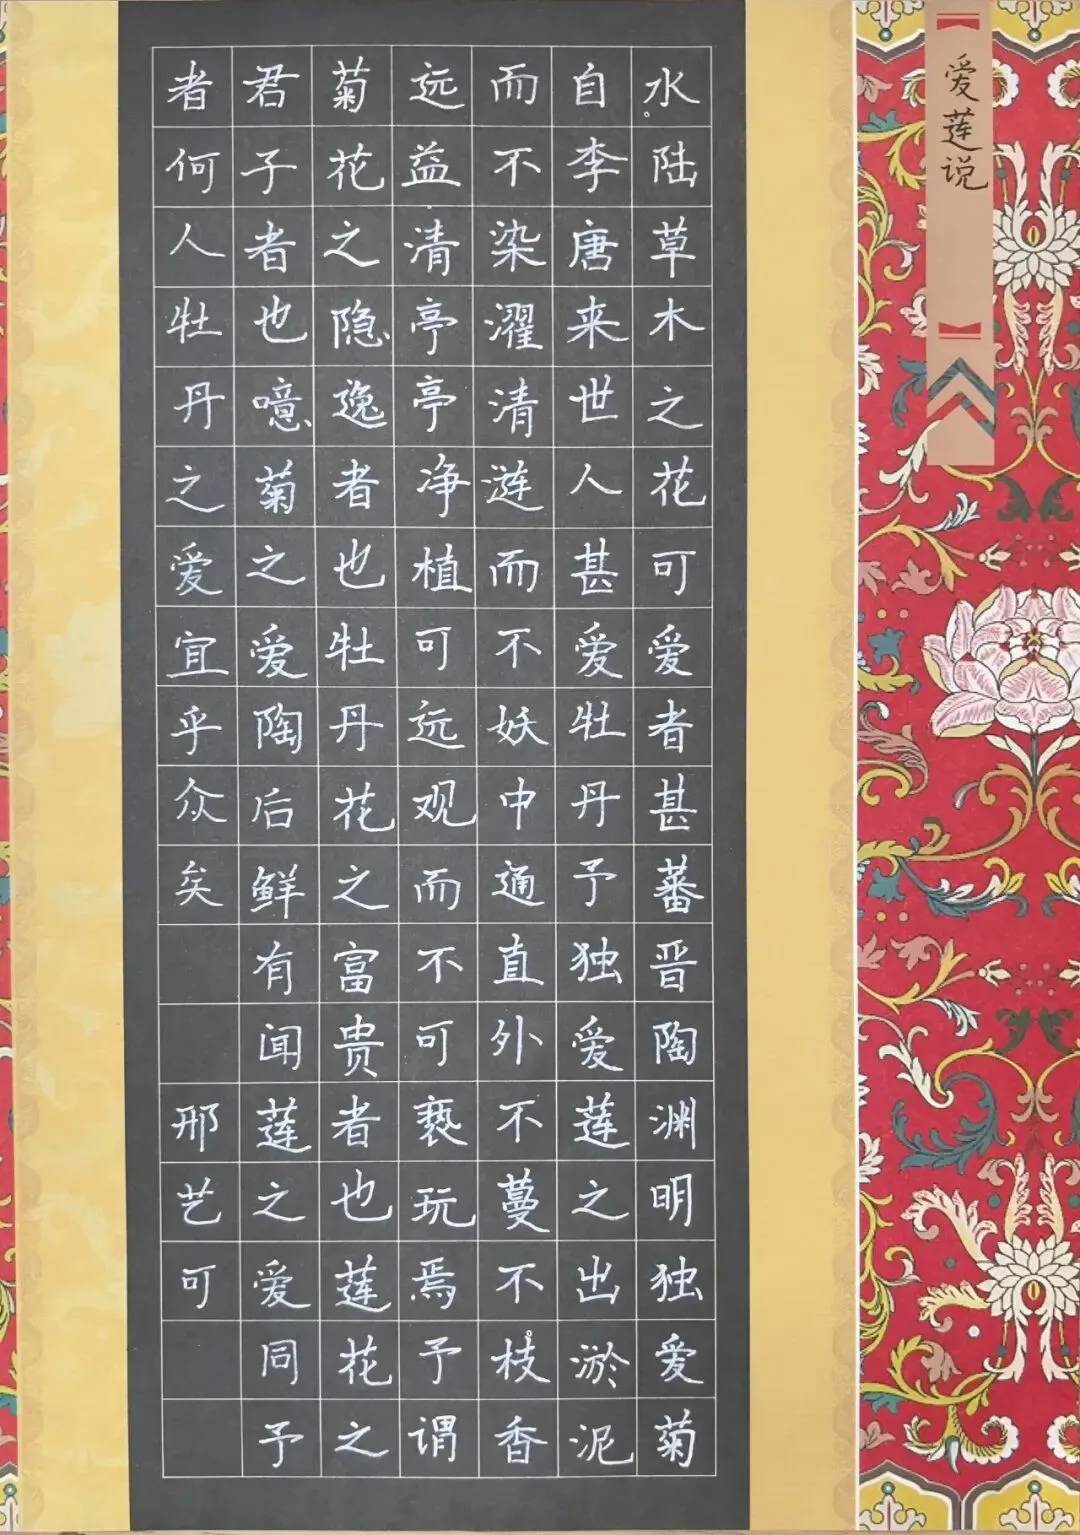 爱莲说
水陆草木之花可爱者甚蕃晋陶渊明独爱菊
自李唐来世人甚爱牡丹予独爱莲之出淤泥
而不染濯清涟而不妖中通直外不蔓不枝香
远益清亭亭净植可远观而不可亵玩焉予谓
菊花之隐逸者也牡丹花之富贵者也莲花之
君子者也噫菊之爱陶后鲜有闻莲之爱同予
者何人牡丹之爱宜乎众矣 邢艺可